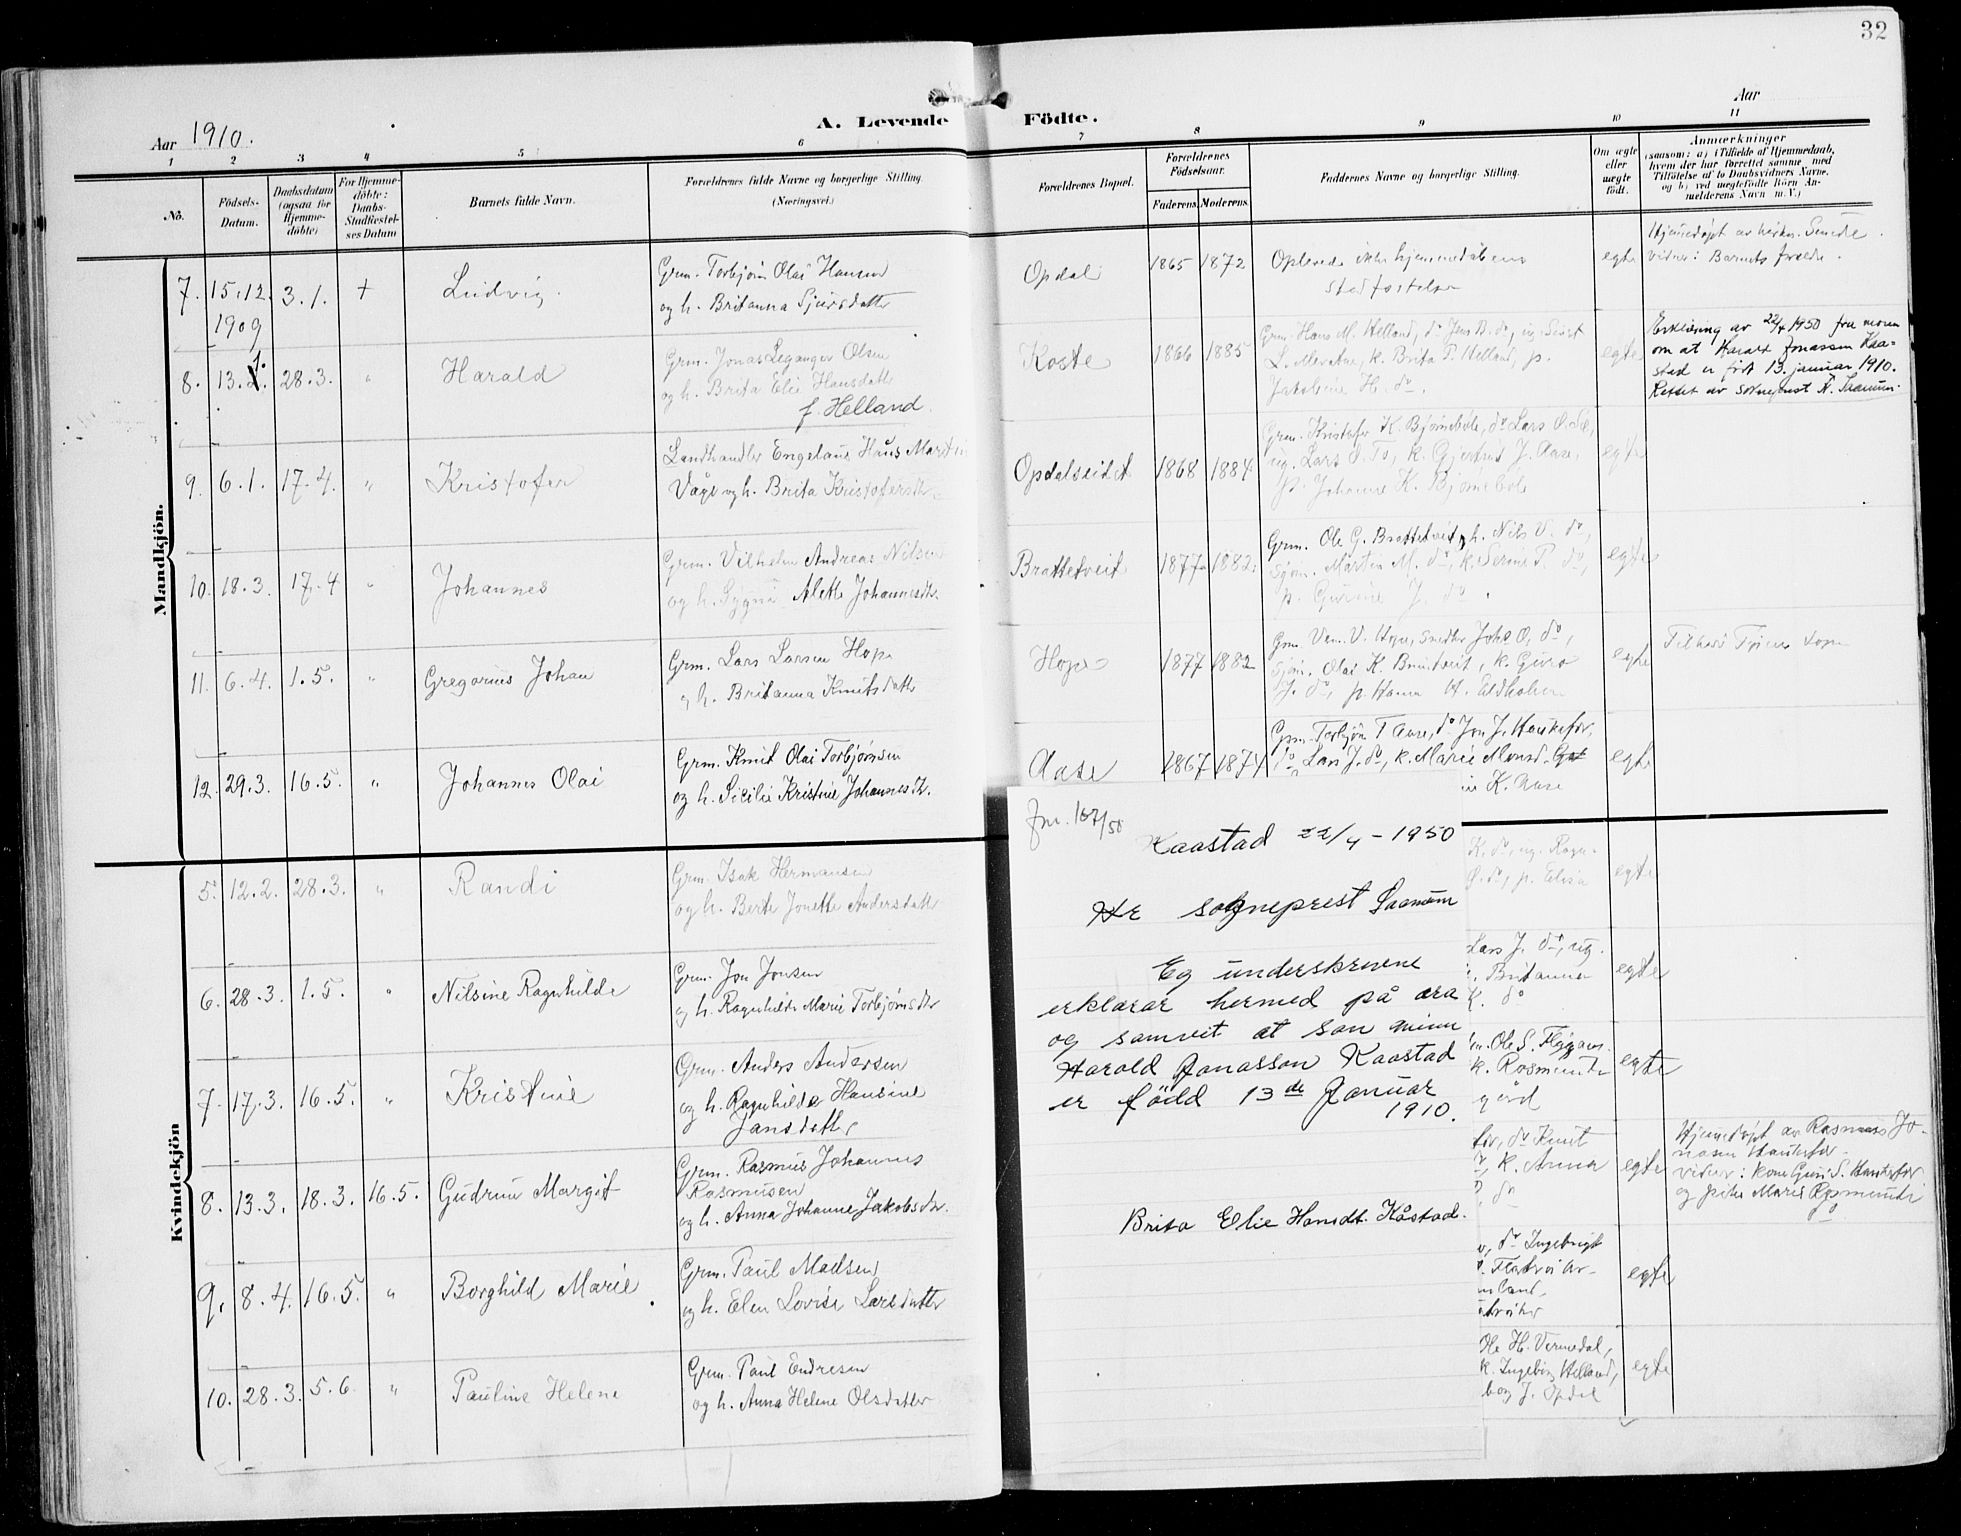 32
Aar 1910.
A. Levende Födte.
Aar
1 2 3 4 5 6 7 8 9 10 11
No.
Födsels-Datum.
Daabsdatum (ogsaa for Hjemme-döbte)
For Hjemme-döbte: Daabs-Stadfæstel-ses Datum
Barnets fulde Navn.
Forældrenes fulde Navne og borgerlige Stilling. (Næringsvei.)
Forældrenes Bopæl.
Forældrenes Födselsaar.
Faderens. Moderens.
Faddernes Navne og borgerlige Stilling.
Om ægte eller uægte födt.
Anmærkninger
(saasom: a) i Tilfælde af Hjemmedaab,
hvem der har forrettet samme, med
Tilföielse af to Daabsvidners Navne,
og b) ved uægtefödte Börn An-
melderens Navn m. V.)
Mandkjön.
7. 15.12. 1909 3.1. + Ludvig.
Grm. Torbjørn Olai Hansen
og h. Britanna Sjursdatter
Opdal 1865 1872
Oplevede ikke hjemmedaabens
stadfæstelse
egte
Hjemedøpt av
vidner: Barnets
8. 13.1. 28.3. " Harald
Grm. Jonas Leganger Olsen
og h. Brita Elie Hansdatter
f. Helland.
Koste 1866 1885
Grm. Hans M. Helland, do Jens B. do, ug. Sjurt
L. k. Brita P. Helland, p.
Jakobine H. do.
egte
Erklæring av 22/4 1950 fra moren
om at Harald Jonassen Kaa-
stad er født 13. januar 1910.
Rettet av sokneprest Saanum.
9. 6.1. 17.4. " Kristofer
Landhandler Engelaus Haus Martin
Våge og h. Brita Kristofersdtr.
Opdalseidet 1868 1884
Grm. Kristofer K. Bjørnebole, do Lars O. Se,
ug. Lars O. To, k. Gjertrud J. Aase,
p. Johanne K. Bjørnebole
egte
10. 18.3. 17.4 " Johannes
Grm. Vilhelm Andreas Nilsen
og h. Sygnå Alette Johannesdtr.
Brattetveit 1877 1882
Grm. Ole G. Brattetveit, h. Nils V. do,
Sjøm. Martin M. do, k. Serine P. do,
p. Gurine J. do.
egte
11. 6.4. 1.5. " Gregorius Johan
Grm. Lars Larsen Hope
og h. Britanna Knutsdatter
Hope 1877 1882
Grm. V. Hope, snedker Johs O. do,
Sjøm. Olai K. k. Guro
J. do, p. Hanna H. Eldholm
egte
12. 29.3. 16.5. " Johannes Olai
Grm. Knut Olai Torbjørnsen
og h. Sicilie Kristine Johannesdtr.
Aase 1867 1874
Grm. Torbjørn T Aase, do Jon J. Haukefær,
do Lars J. do, k. Marie Monsd.
K. Aase
egte
Kvindekjön
5. 12.2. 28.3. " Randi
Grm. Isak Hermansen
og h. Berte Jonette Andersdatter
K. do, ug. Ragn-
O. do, p. Elisa
egte
6. 28.3. 1.5. " Nilsine Ragnhilde
Grm. Jon Jonsen
og h. Ragnhilde Marie Torbjørnsdtr
Lars J. do, ug.
Britanna
K. do
egte
7. 17.3. 16.5. " Kristine
Grm. Anders Andersen
og h. Ragnhilde Hansine
Jansdatter
Ole S. Flygans-
k. Rosmunde
gård
egte
8. 13.3. 18.3. 16.5. Gudrun Margit
Grm. Rasmus Johannes
Rasmusen
og h. Anna Johanne Jakobsdtr.
for, do Knut
k. Anna
do
egte
Hjemedøpt av Rasmus Jo-
nasen
vidner: kone Guri S.
og pike Marie
9. 8.4. 16.5. " Borghild Marie.
Grm. Paul Madsen
og h. Elen Lovise Larsdatter
do Ingebrigt
egte
10. 28.3. 5.6. " Pauline Helene
Grm. Paul Endresen
og h. Anna Helene Olsdatter
Ole H. Vermedal,
k. Ingebor Helland,
J. Opdal
egte
Jnr. 167/50
Kaastad 22/4 - 1950
Hr sogneprest Saanum
Eg underskrevne
erklærar hermed på æra
og samvit at son minn
Harald Jonasson Kaastad
er född 13de Januar
1910.
Brita Elie Hansdt. Kåstad.